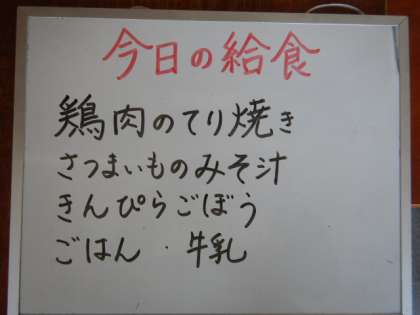 今日の給食
鶏肉のてり焼き
さつまいものみそ汁
きんぴらごぼう
ごはん ・ 牛乳